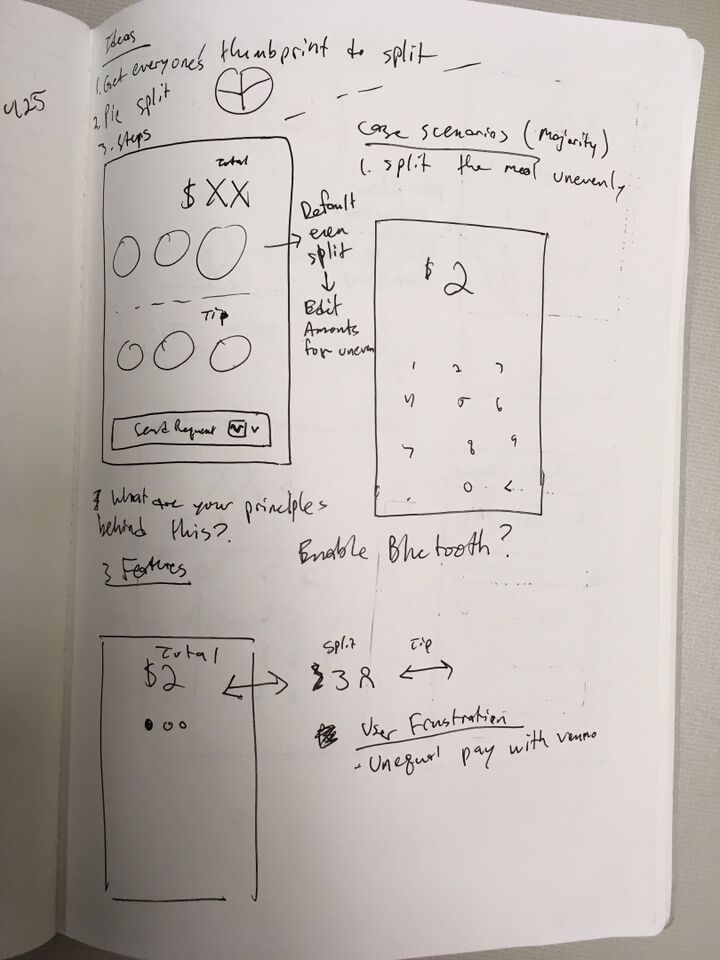 425
Ideas
1. Get everyone's thumbprint to split
2 Pie split
3. Steps
Case scenarios (Majority)
1. split the meal unevenly
Total
$ XX
Default
even
split
Edit
Amonts
for uneven
Tip
Send Request
$ 2
1 2 3
4 5 6
7 8 9
. 0 <
What are your principles
behind this?
Enable Bluetooth?
3 Features
Total
$2
Split
Tip
User Frustration
- Unequal pay with venmo